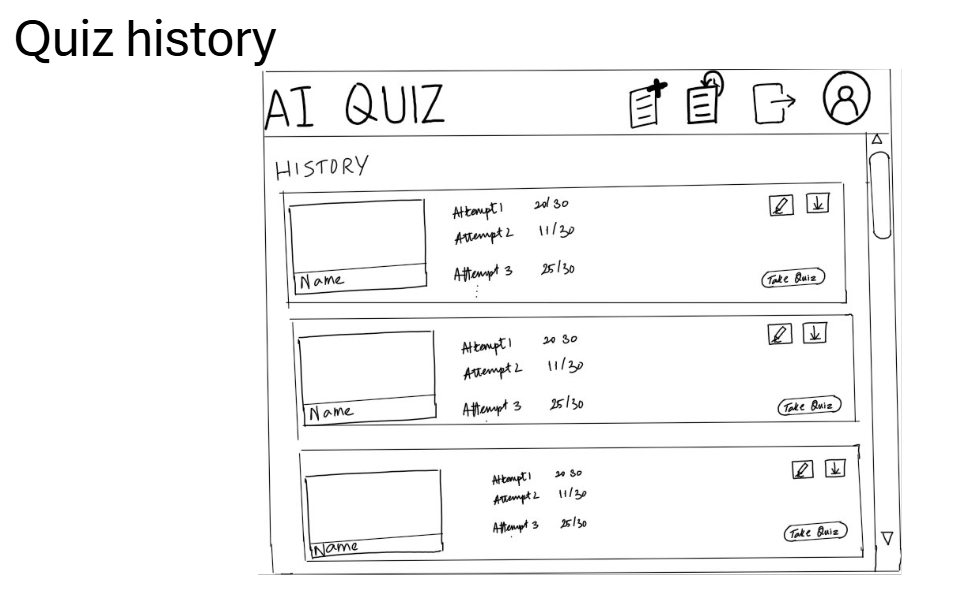 Quiz history
AI QUIZ
HISTORY
Attempt 1 20/30
Attempt 2 11/30
Attempt 3 25/30
Name
Take Quiz
Attempt 1 20 30
Attempt 2 11/30
Attempt 3 25/30
Name
Take Quiz
Attempt 1 20 30
Attempt 2 11/30
Attempt 3 25/30
Name
Take Quiz